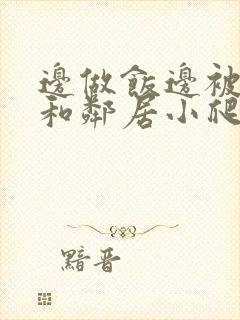 邊做飯邊被
和鄰居小爬
黯晋